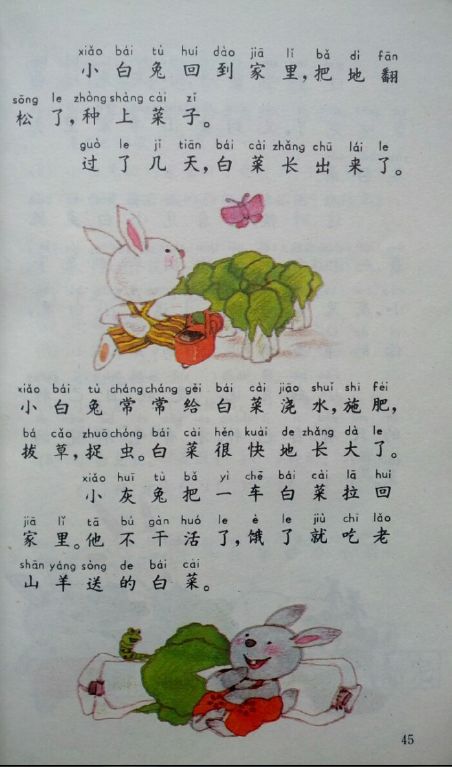 xiǎo bái tù huí dào jiā lǐ bǎ dì fān
小白兔回到家里,把地翻
sōng le zhòng shàng cài zǐ
松了,种上菜子。
guò le jǐ tiān bái cài zhǎng chū lái le
过了几天,白菜长出来了。
xiǎo bái tù cháng cháng gěi bái cài jiāo shuǐ shī féi
小白兔常常给白菜浇水,施肥,
bá cǎo zhuō chóng bái cài hěn kuài de zhǎng dà le
拔草,捉虫。白菜很快地长大了。
xiǎo huī tù bǎ yì chē bái cài lā huí
小灰兔把一车白菜拉回
jiā lǐ tā bú gàn huó le è le jiù chī lǎo
家里。他不干活了,饿了就吃老
shān yáng sòng de bái cài
山羊送的白菜。
45